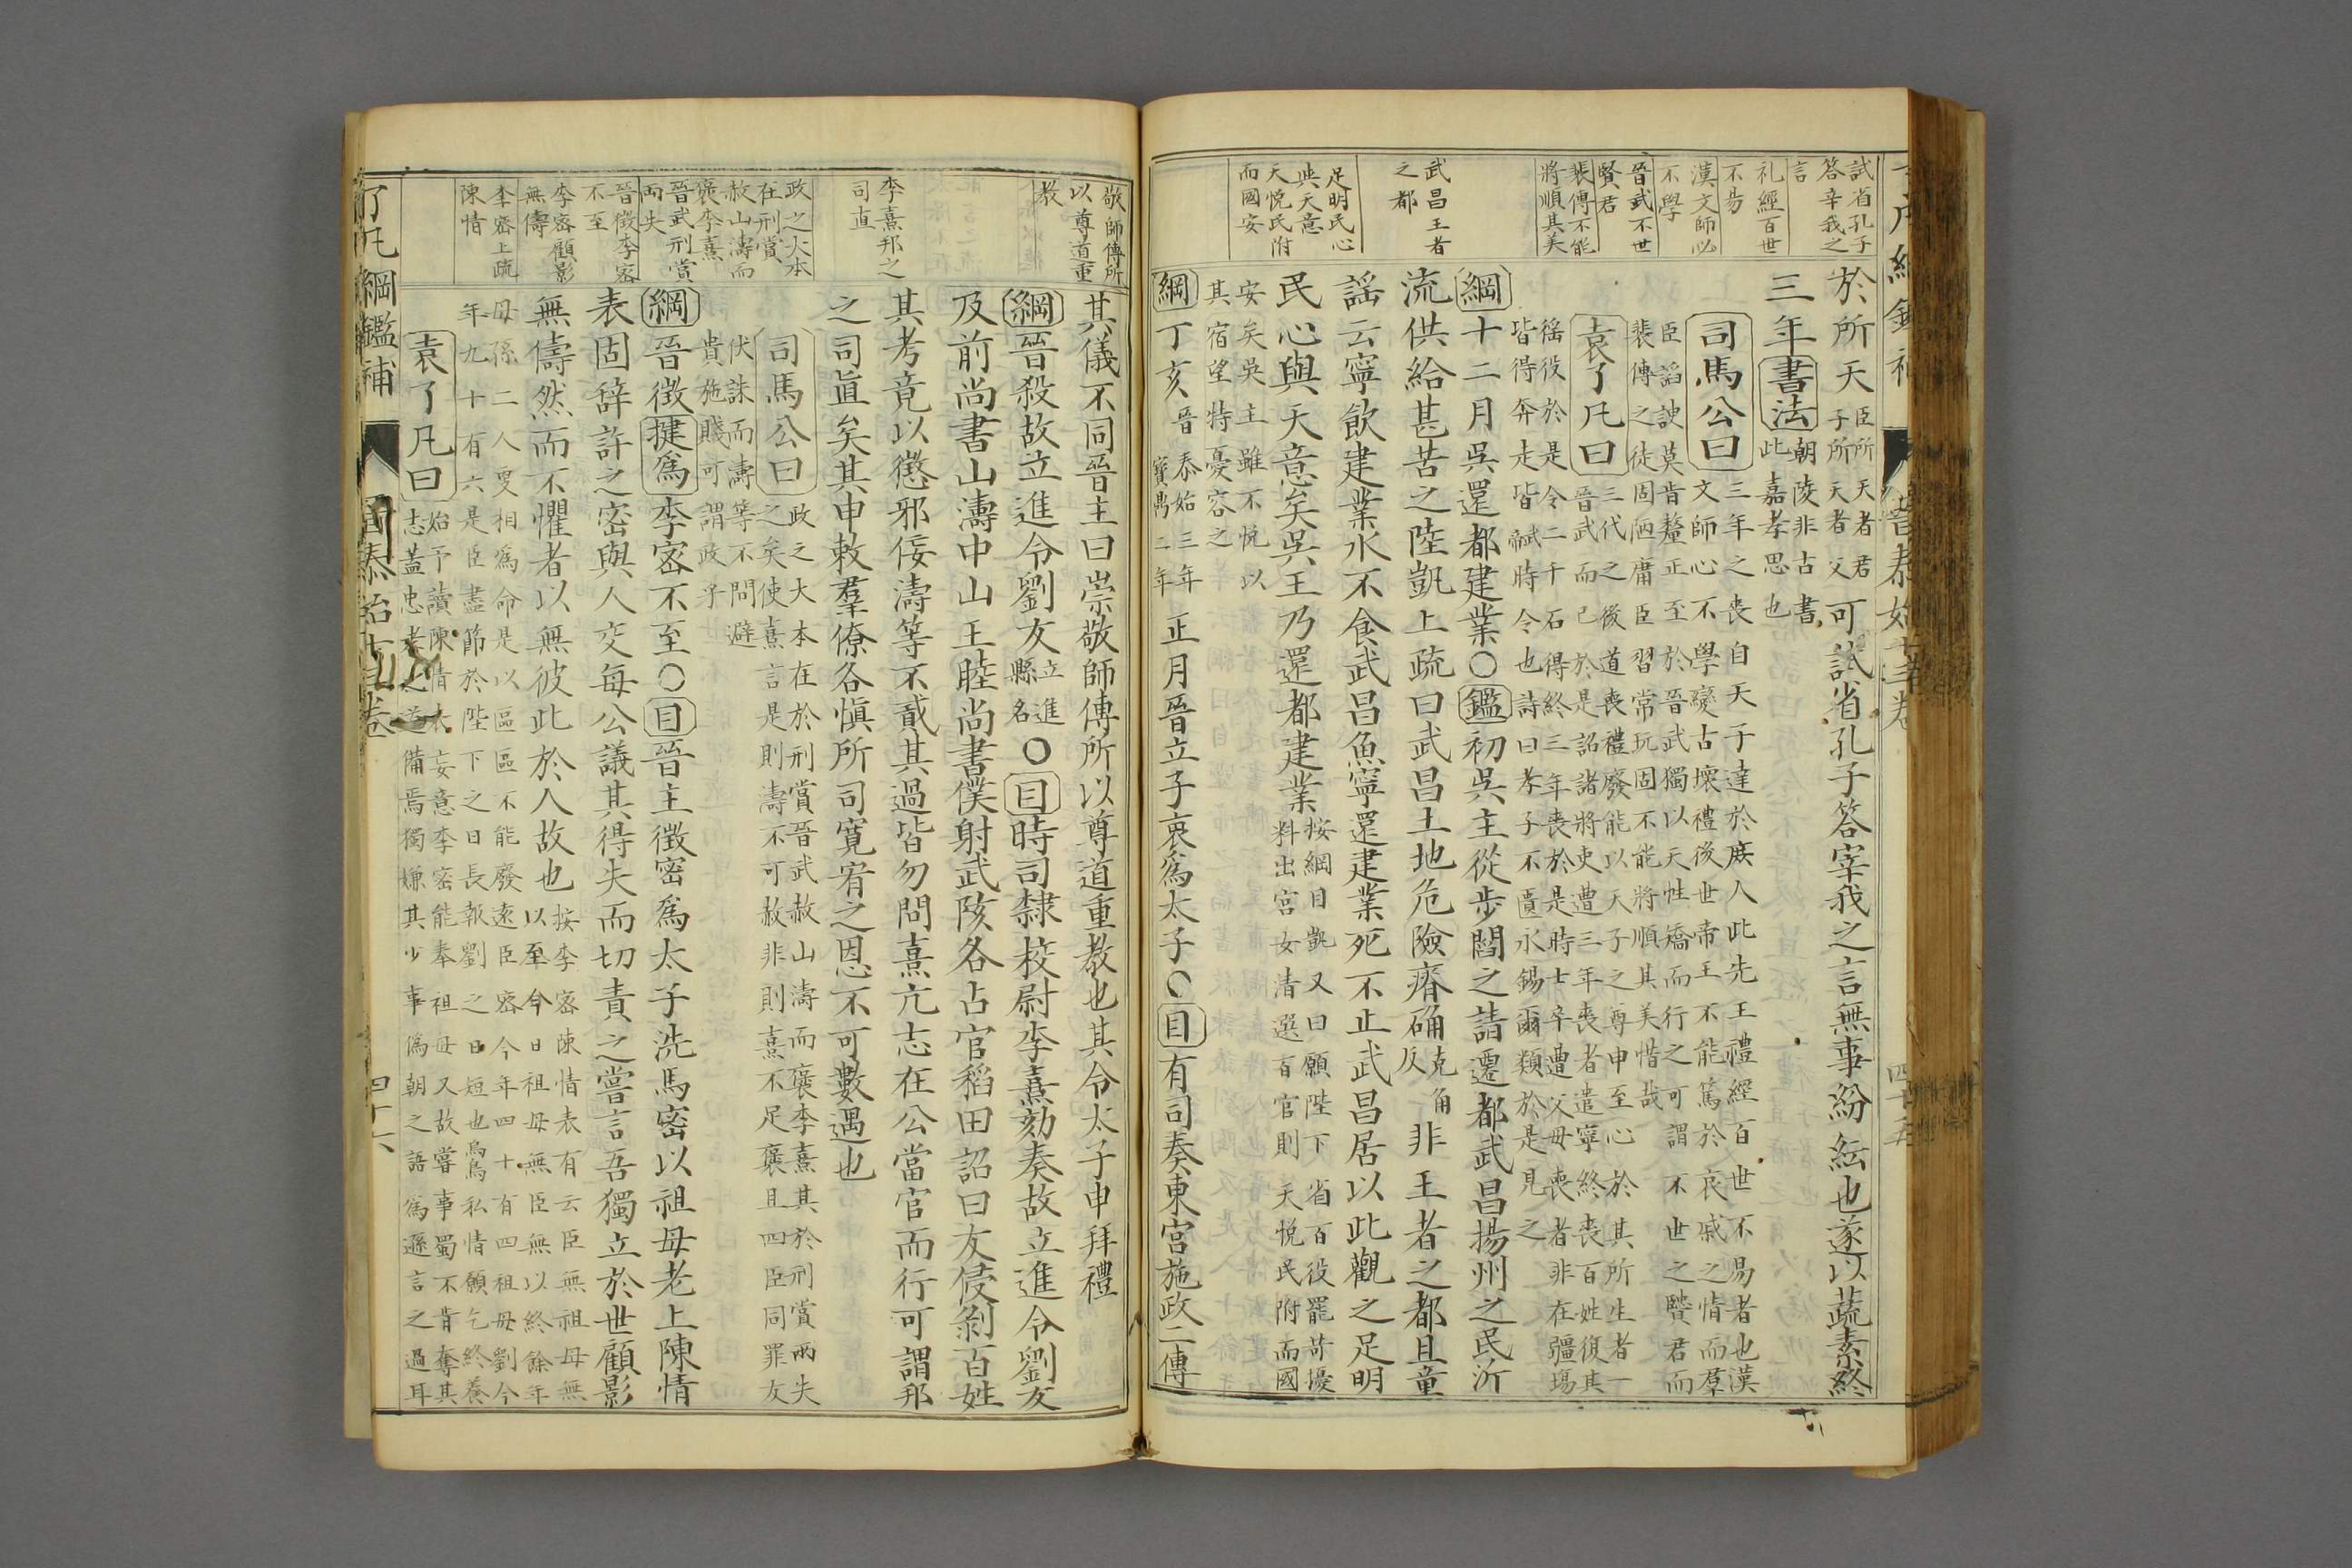 試省孔子
答宰我之
言
礼經百世
不易
漢文師心
不學
晉武不世
賢君
裴傅不能
將順其美
武昌王者
之都
足明民心
與天意
天悅民附
而國安
於所天臣所天者君子所天者父可試省孔子答宰我之言無事紛紜也遂以蔬素終
三年書法朝陵非古書此嘉孝思也
司馬公曰三年之喪自天子達於庶人此先王禮經百世不易者也漢
文師心不學變古壞禮後世帝王不能篤於哀戚之情而羣
臣諂諛莫肯釐正至於晉武獨以天性矯而行之可謂不世之賢君而
裴傅之徒固陋庸臣習常玩固不能將順其美惜哉
袁了凡曰三代之後道喪禮廢能以天子之尊申至心於其所生者一
晉武而已於是詔諸將吏遭三年喪者遣寧終喪百姓復其
徭役於是令二千石得終三年喪於是時士卒遭父母喪者非在疆埸
皆得奔走皆赋時令也詩曰孝子不匱永錫爾類於是見之
綱十二月吳還都建業○鑑初吳主從步闡之請遷都武昌揚州之民泝
流供給甚苦之陸凱上疏曰武昌土地危險瘠确克角反非王者之都且童
謠云寧飲建業水不食武昌魚寧還建業死不止武昌居以此觀之足明
民心與天意矣吳王乃還都建業按綱目凱又曰願陛下省百役罷苛擾料出宮女清選百官則天悅民附而國
安矣吳主雖不悅以
其宿望特憂容之
綱丁亥晉泰始三年寶鼎二年正月晉立子衷爲太子○目有司奏東宮施政二傅
敬師傅所
以尊道重
教
李熹邦之
司直
政之大本
在刑賞
赦山濤而
褒李熹
晉武刑賞
兩失
晉徵李密
不至
李密顧影
無儔
李密上疏
陳情
其儀不同晉主曰崇敬師傅所以尊道重教也其令太子申拜禮
綱晉殺故立進令劉友立進縣名○目時司隸校尉李熹劾奏故立進令劉友
及前尚書山濤中山王睦尚書僕射武陔各占官稻田詔曰友侵剝百姓
其考竟以懲邪佞濤等不貳其過皆勿問熹亢志在公當官而行可謂邦
之司直矣其申敕羣僚各慎所司寬宥之恩不可數遇也
司馬公曰政之大本在於刑賞晉武赦山濤而褒李熹其於刑賞兩失
之矣使熹言是則濤不可赦非則熹不足褒且四臣同罪友
伏誅而濤等不問避
貴施賤可謂政乎
綱晉徵揵爲李密不至○目晉主徵密爲太子洗馬密以祖母老上陳情
表固辞許之密與人交每公議其得失而切責之嘗言吾獨立於世顧影
無儔然而不懼者以無彼此於人故也按李密陳情表有云臣無祖母無以至今日祖母無臣無以終餘年
母孫二人更相爲命是以區區不能廢遠臣密今年四十有四祖母劉今
年九十有六是臣盡節於陛下之日長報劉之日短也烏鳥私情願乞終養
袁了凡曰始予讀陳情表妄意李密能奉祖母又故嘗事蜀不肯奪其
志蓋忠孝之道備焉獨嫌其少事僞朝之語爲遜言之過耳
了凡綱鑑補
四十六